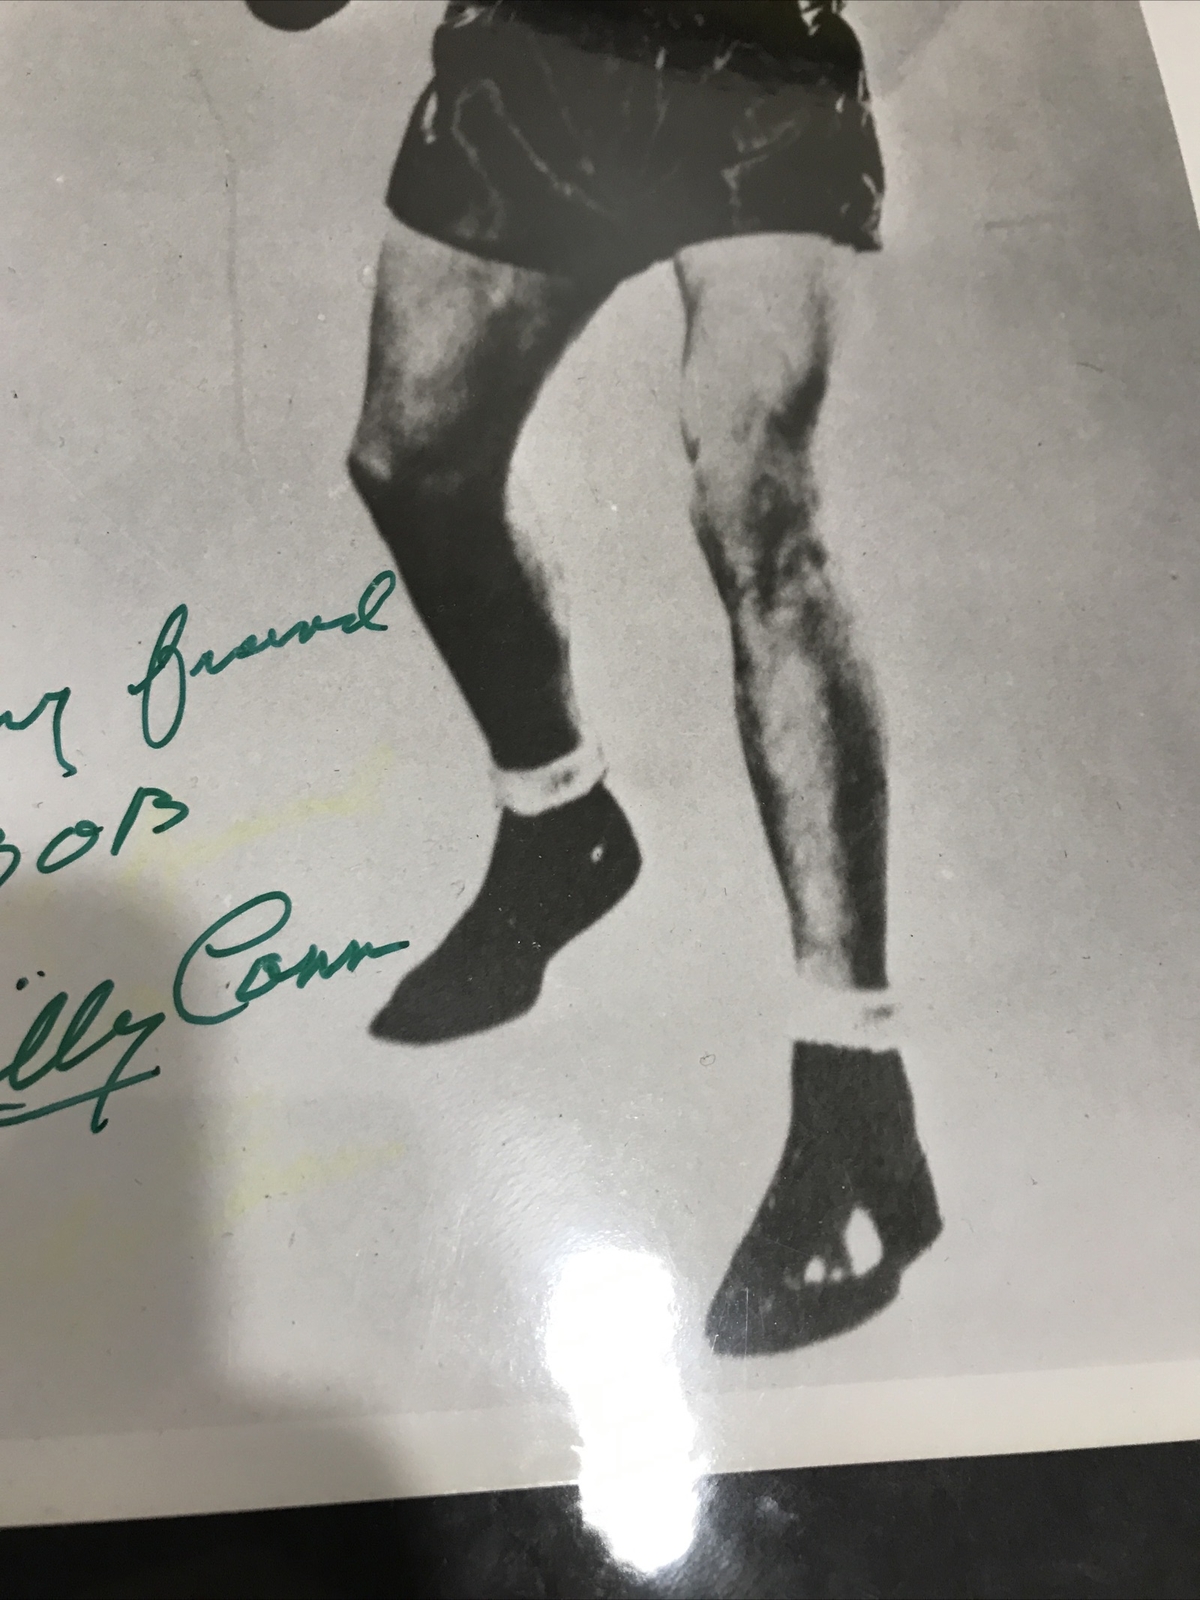 my friend
BOB
Billy Conn